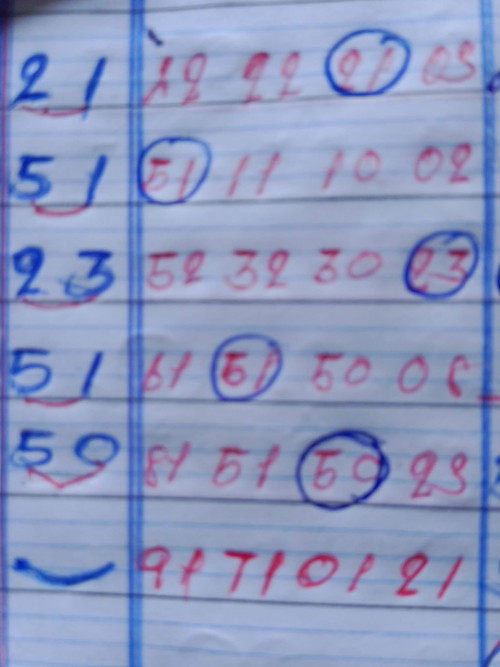 21 12 22 21 03
51 51 11 10 02
23 52 32 30 23
51 61 51 50 05
50 81 51 50 23
91 71 01 21